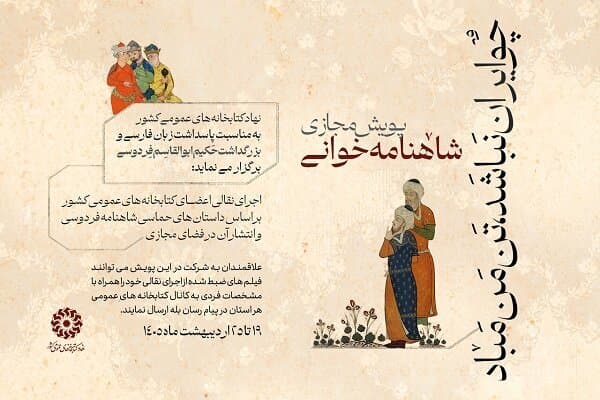 چو ایران نباشد، تن من مباد
پویش مجازی
شاهنامه‌خوانی
نهاد کتابخانه‌های عمومی کشور
به مناسبت پاسداشت زبان فارسی و
بزرگداشت حکیم ابوالقاسم فردوسی
برگزار می نماید:
اجرای نقالی اعضای کتابخانه‌های عمومی کشور
بر اساس داستان‌های حماسی شاهنامه فردوسی
و انتشار آن در فضای مجازی
علاقمندان به شرکت در این پویش می توانند
فیلم های ضبط شده از اجرای نقالی خود را همراه با
مشخصات فردی به کانال کتابخانه های عمومی
هر استان در پیام رسان بله ارسال نمایند.
۱۹ تا ۲۵ اردیبهشت ماه ۱۴۰۵
نهاد کتابخانه‌های عمومی کشور